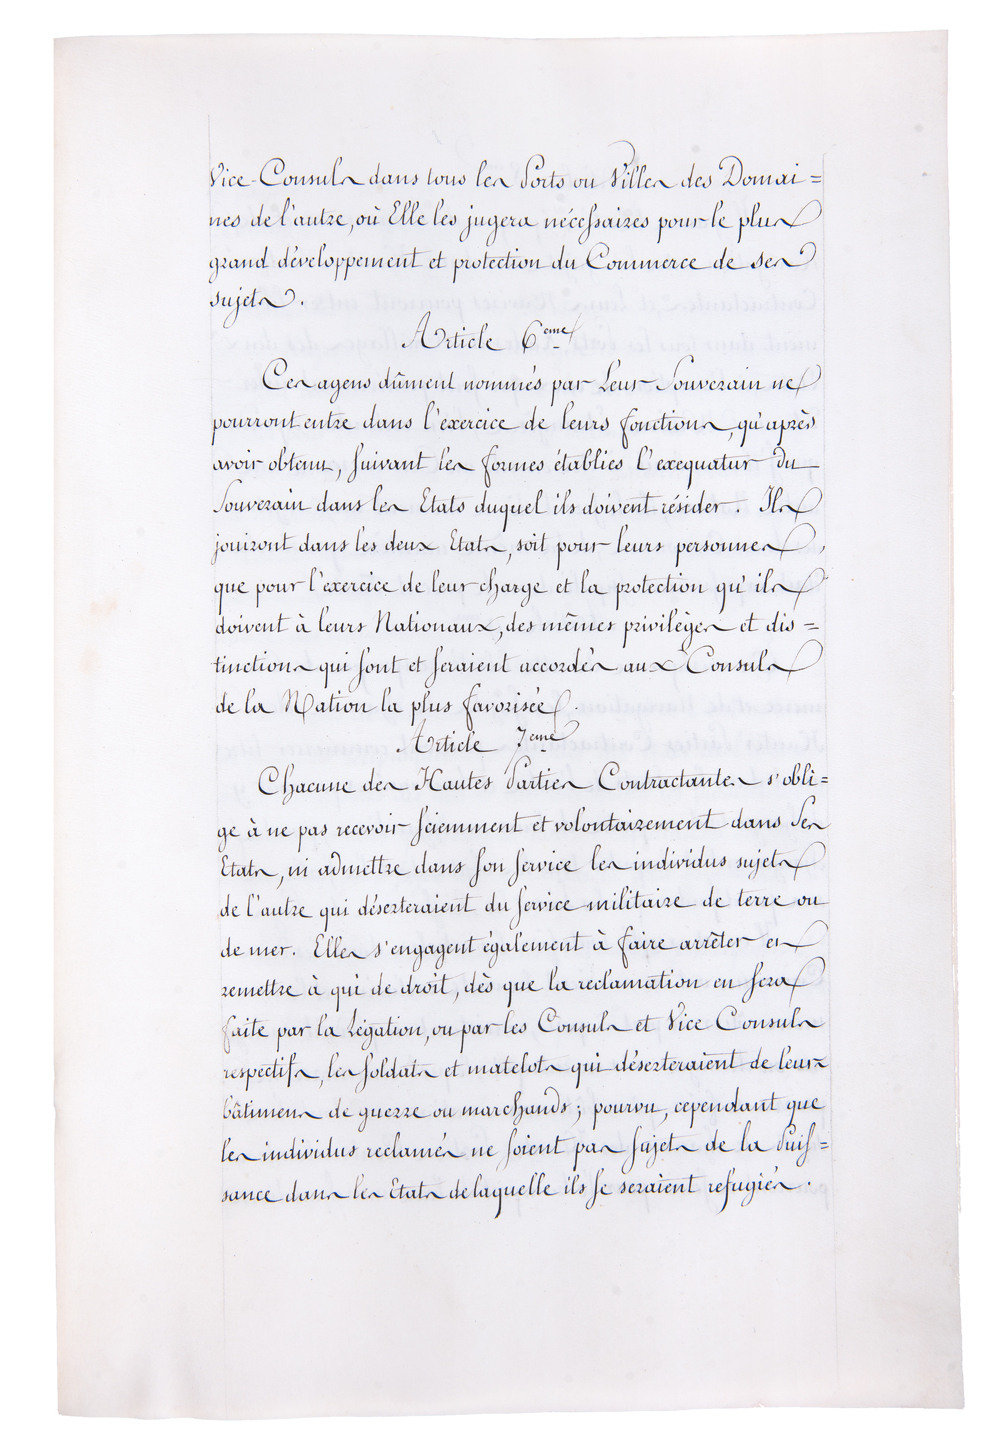 Vice-Consuls dans tous les Ports ou Villes des Domai=
nes de l'autre, où Elle les jugera nécessaires pour le plus
grand développement et protection du Commerce de ses
sujets.
Article 6ème
Ces agens dûment nommés par Leur Souverain ne
pourront entre dans l'exercice de leurs fonctions, qu'après
avoir obtenu, suivant les formes établies l'exequatur du
Souverain dans les Etats duquel ils doivent résider. Ils
jouiront dans les deux Etats, soit pour leurs personnes,
que pour l'exercice de leur charge et la protection qu'ils
doivent à leurs Nationaux, des mêmes privilèges et dis=
tinctions qui sont et seraient accordés aux Consuls
de la Nation la plus favorisée.
Article 7ème
Chacune des Hautes Parties Contractantes s'obli=
ge à ne pas recevoir sciemment et volontairement dans Ses
Etats, ni admettre dans son service les individus sujets
de l'autre qui déserteraient du service militaire de terre ou
de mer. Elles s'engagent également à faire arrêter et
remettre à qui de droit, dès que la reclamation en sera
faite par la Légation, ou par les Consuls et Vice Consuls
respectifs, les soldats et matelots qui déserteraient de leurs
bâtimens de guerre ou marchands; pourvu, cependant que
les individus reclamés ne soient pas sujets de la Puis=
sance dans les Etats de laquelle ils se seraient refugiés.